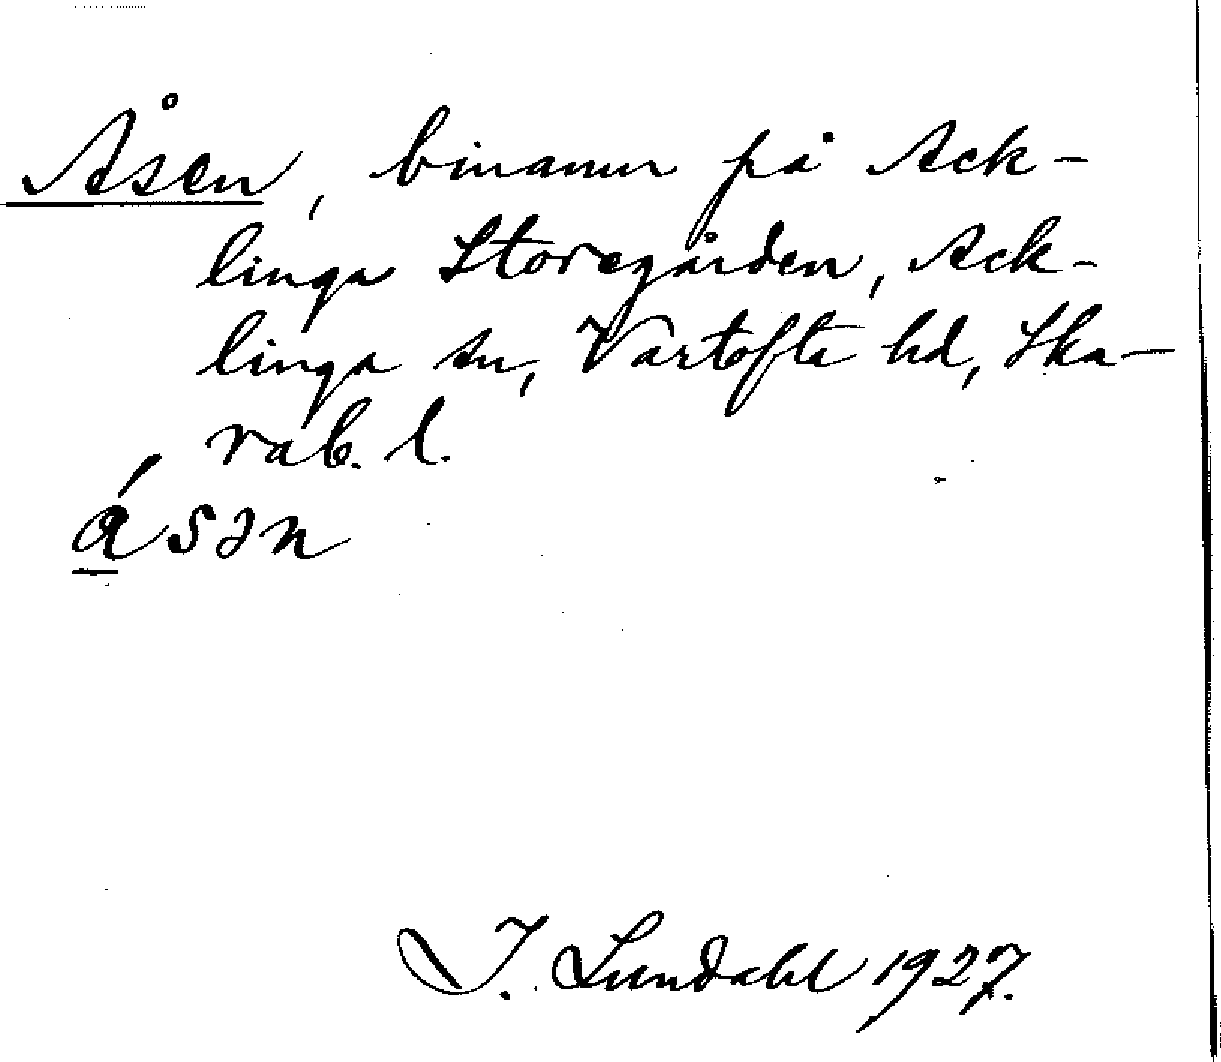 Åsen, binamn på Ack-
linga Storegården, Ack-
linga sn, Vartofta hd, Ska-
rab. l.
ásən
I. Lundahl 1927.